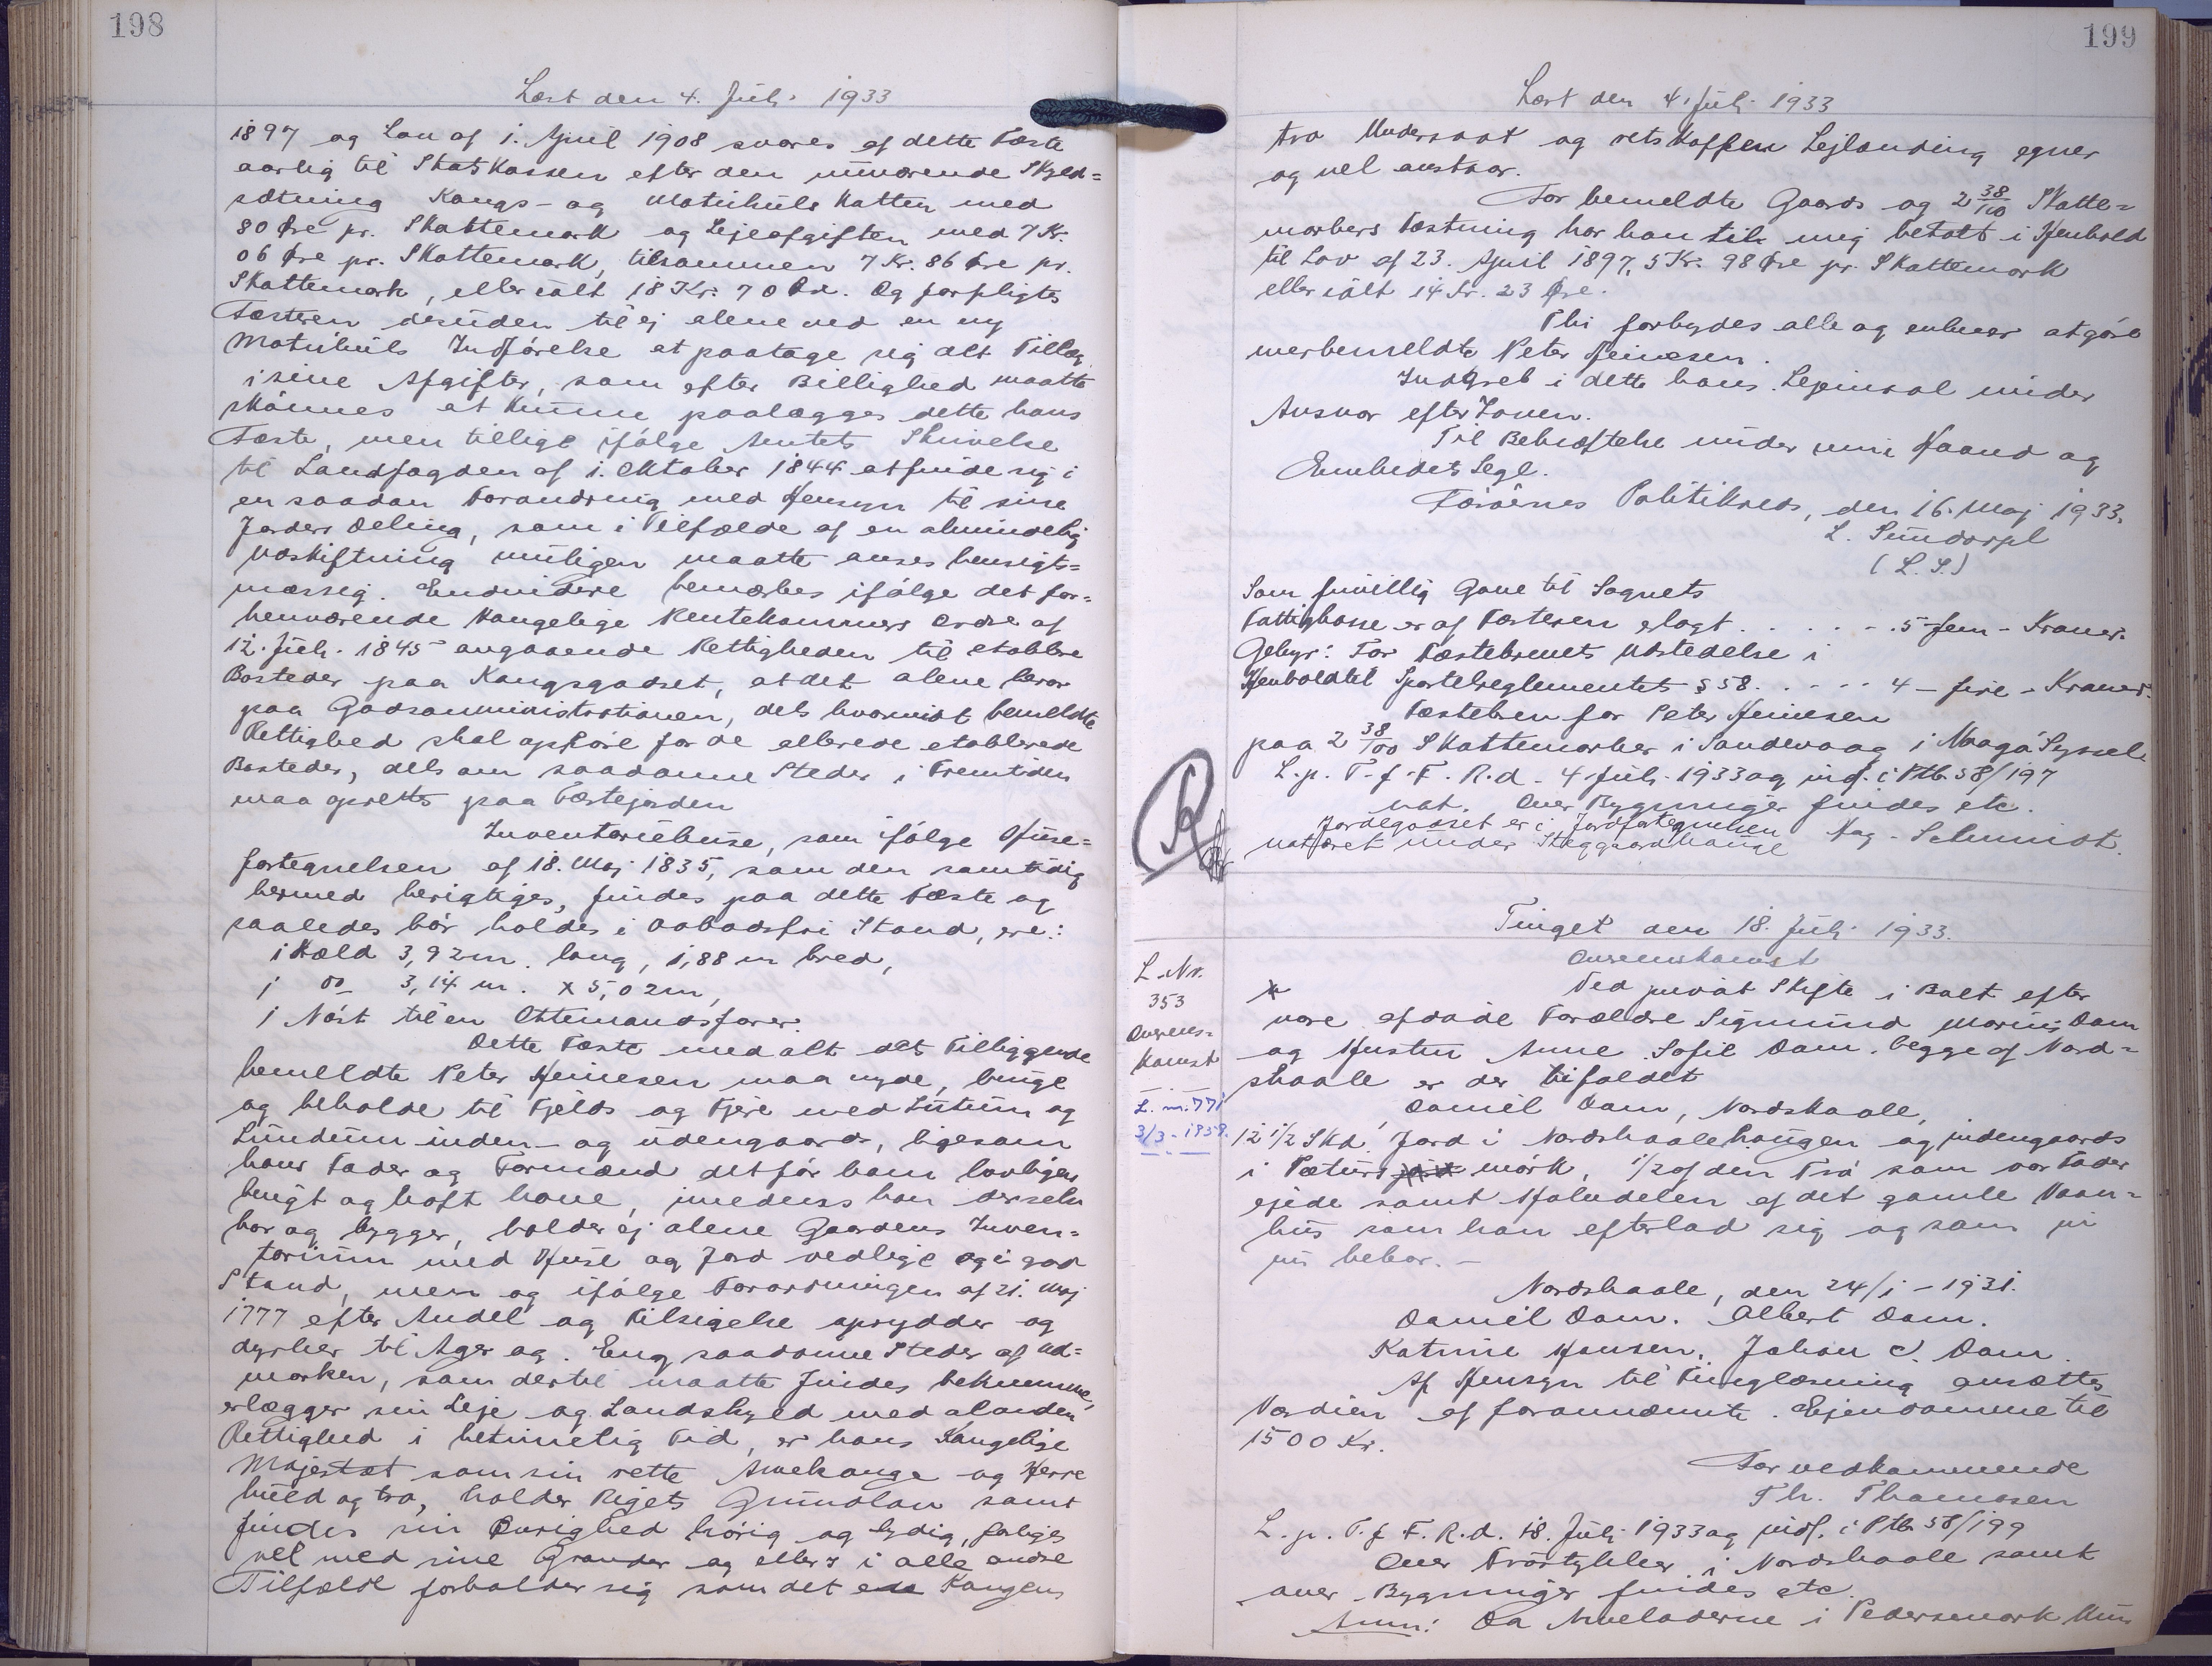 198
Læst den 4. Juli 1933
1897 og Lov af 1. April 1908 svares af dette Fæste
aarlig til Statskassen efter den nuværende Skyld=
sætning Kongs- og Matrikulskatten med
80 Øre pr. Skattemark og Lejeafgiften med 7 Kr.
06 Øre pr. Skattemark, tilsammen 7 Kr. 86 Øre pr.
Skattemark, eller ialt 18 Kr. 70 Øre. Og forpligtes
Fæsteren desuden til ej alene ved en ny
Matrikuls Indførelse at paatage sig alt Tillæg
i sine Afgifter, som efter Billighed maatte
skønnes at kunne paalægges dette hans
Fæste, men tillige ifølge Amtets Skrivelse
til Landfogden af 1. Oktober 1844 at finde sig i
en saadan Forandring med Hensyn til sine
Jorders Deling, som i Tilfælde af en almindelig
Udskiftning muligen maatte anses hensigts=
mæssig. Endvidere bemærkes ifølge det for=
henværende Kongelige Rentekammers Ordre af
12. Juli 1845 angaaende Rettigheden til etablere
Bosteder paa Kongsgodset, at det alene beror
paa Godsadministrationen, dels hvorvidt bemeldte
Rettighed skal ophøre for de allerede etablerede
Bosteder, dels om saadanne Steder i Fremtiden
maa oprettes paa Fæstejorden
Inventariehuse, som ifølge Huse=
fortegnelsen af 18. Maj 1835, som den samtidig
hermed berigtiges, findes paa dette Fæste og
saaledes bør holdes i aabodsfri Stand, ere:
1 Hæld 3,92 m. lang, 1,88 m bred,
1 do 3,14 m. x 5,02 m,
1 Nøst til en Ottemandsfarer.
Dette Fæste med alt det Tilliggende
bemeldte Peter Heinesen maa nyde, bruge
og beholde til Fjelds og Fjære med Lutum og
Lundum inden- og udengaards, ligesom
hans Fader og Formænd det før ham lovligen
brugt og haft have, imedens han derselv
bor og bygger, holder ej alene Gaardens Inven=
tarium med Huse og Jord vedlige og i god
Stand, men og ifølge Forordningen af 21. Maj
1777 efter Andel og Tilsigelse oprydder og
dyrker til Ager og Eng saadanne Steder af Ud=
marken, som dertil maatte findes bekvemme,
erlægger sin Leje og Landskyld med al anden
Rettighed i betimelig Tid, er hans Kongelige
Majestæt som sin rette Arvekonge og Herre
huld og tro, holder Rigets Grundlov samt
findes sin Øvrighed hørig og lydig, forliges
vel med sine Grander og ellers i alle andre
Tilfælde forholder sig som det Kongens
199
Læst den 4. Juli 1933
tro Undersaat og retskaffen Lejlænding egner
og vel anstaar.
For bemeldte Gaards og 2 38/100 Skatte=
markers Fæstning har han til mig betalt i Henhold
til Lov af 23. April 1897, 5 Kr. 98 Øre pr. Skattemark
eller ialt 14 Kr. 23 Øre.
Thi forbydes alle og enhver at gøre
merbemeldte Peter Heinesen
Indgreb i dette hans Lejemaal under
Ansvar efter Loven.
Til Bekræftelse under min Haand og
Embedets Segl.
Færøernes Politikreds, den 16. Maj 1933.
L. Sundorph
(L.S.)
Som frivillig Gave til Sognets
Fattigkasse er af Fæsteren erlagt . . . . . . 5 - fem - Kroner.
Gebyr: For Fæstebrevets Udstedelse i
Henhold til Sportelreglementets § 58. . . . . 4 - fire - Kroner.
Fæstebrev for Peter Heinesen
paa 2 38/100 Skattemarker i Sandevaag i Vaagø Syssel
L. p. T. f. F. R. d. 4 Juli 1933 og indf. i Ptb. 58/197
not. Over Bygninger findes etc.
Jordegodset er i Jordfortegnelsen
noteret under Steggjardhauge Aag. Schmidt.
R
Tinget den 18. Juli 1933.
L. Nr.
353
Overens=
komst
L. nr. 771
3/3 - 1959.
Overenskomst
Ved privat Skifte i Boet efter
vore afdøde Forældre Sigmund Marius Dam
og Hustru Anne Sofie Dam, begge af Nord=
skaale er der tilfaldet
Daniel Dam, Nordskaale,
12 1/2 Skd. Jord i Nordskaalehaugen og indengaards
i Pæturs mørk, 1/2 af den Trø som vor Fader
ejede samt Halvdelen af det gamle Vaan=
hus som han efterlod sig og som vi
nu bebor. -
Nordskaale, den 24/1 - 1931.
Daniel Dam. Albert Dam.
Katrine Hansen. Johan J. Dam.
Af Hensyn til Tinglæsning ansættes
Værdien af forannævnte Ejendomme til
1500 Kr.
For vedkommende
Th. Thomsen
L. p. T. f. F. R. d. 18. Juli 1933 og indf. i Ptb. 58/199
Over Trøstykker i Nordskaale samt
over Bygninger findes etc.
Anm: Da Arveladerne i Pedersmark kun